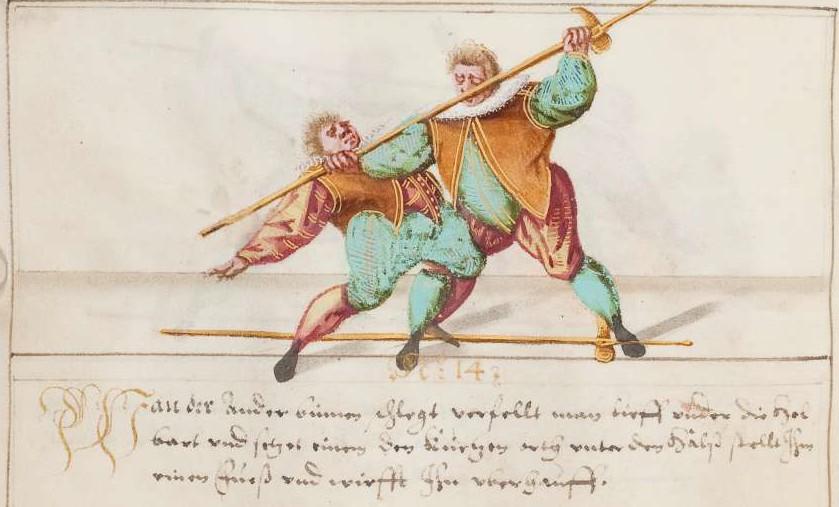 No: 143
Wan der Ander binnen schlegt verfellt man tieff vnder die Hel
bart vnd setzet einem den kurtzen orth vnter den Halß stellt Ihm
einen Fueß vnd wirfft Ihn vberhauff.